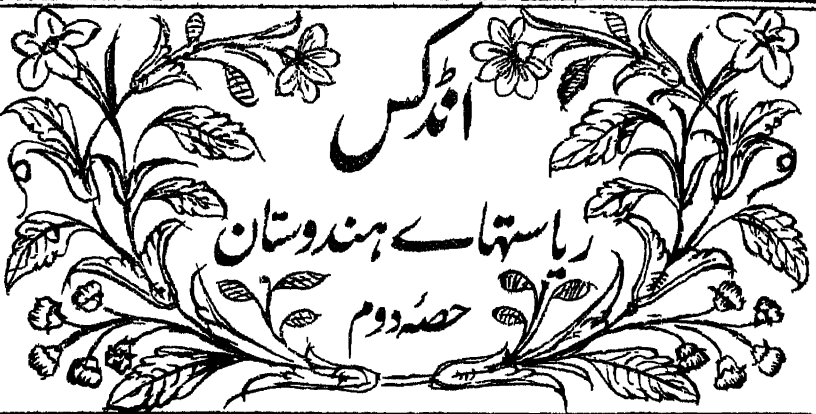 انڈکس
ریاستہاے ہندوستان
حصۂ دوم